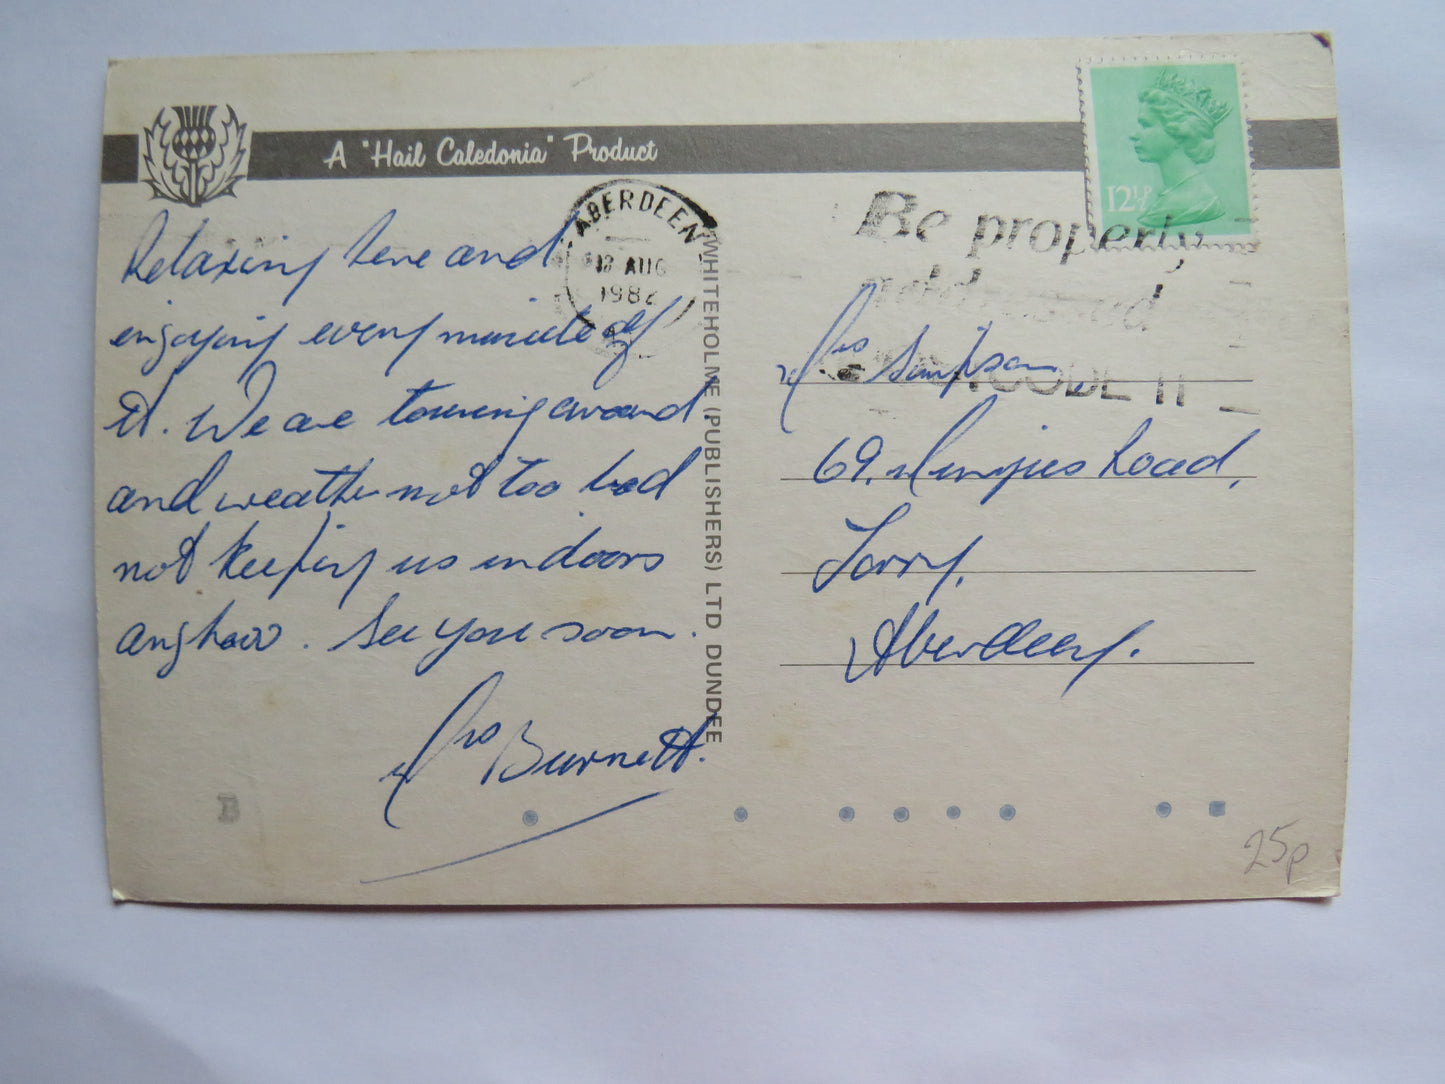 A "Hail Caledonia" Product
12½P
ABERDEEN
12 AUG
1982
Be properly
addressed
POSTCODE IT
Relaxing here and
enjoying every minute of
it. We are touring around
and weather not too bad
not keeping us indoors
anyhow. See you soon.
Mrs Burnett.
WHITEHOLME (PUBLISHERS) LTD DUNDEE
Mrs Simpson
69, Menzies Road,
Torry,
Aberdeen.
B
25p